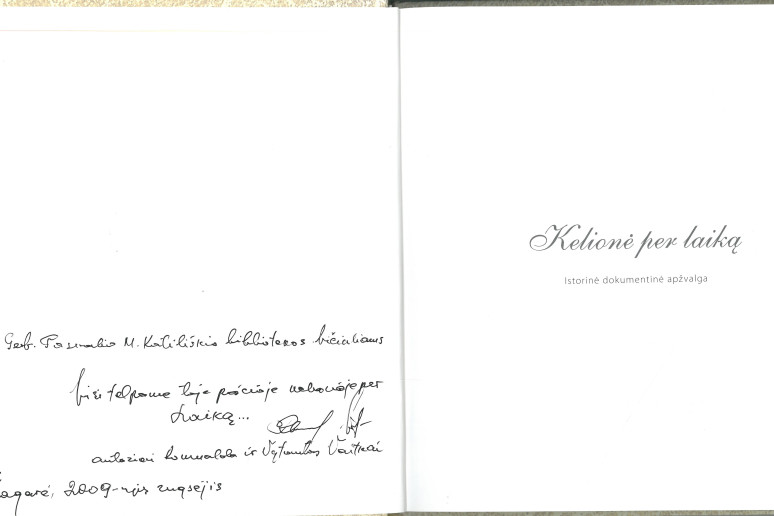 Gerb. Pasvalio M. Katiliškio bibliotekos bičiuliams
visi telpame toje pačioje kelionėje per
Laiką...
autoriai Romualda ir Vytautas Vaitkai
Žagarė, 2009-ųjų rugsėjis
Kelionė per laiką
Istorinė dokumentinė apžvalga